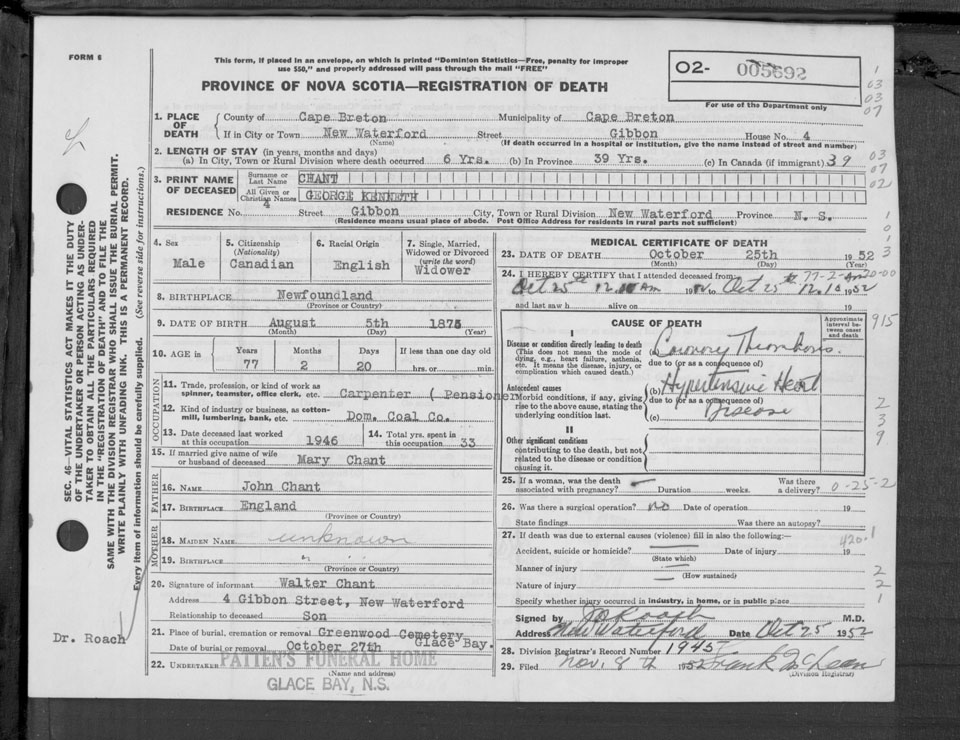 FORM 6
This form, if placed in an envelope, on which is printed "Dominion Statistics—Free, penalty for improper
use $50," and properly addressed will pass through the mail "FREE"
PROVINCE OF NOVA SCOTIA—REGISTRATION OF DEATH
O2- 005692
For use of the Department only
1 03 03 07
1. PLACE OF DEATH
County of Cape Breton Municipality of Cape Breton
If in City or Town New Waterford Street Gibbon House No. 4
(Name) (If death occurred in a hospital or institution, give the name instead of street and number)
2. LENGTH OF STAY (in years, months and days)
(a) In City, Town or Rural Division where death occurred 6 Yrs. (b) In Province 39 Yrs. (c) In Canada (if immigrant) 39
03 07 02
3. PRINT NAME OF DECEASED
Surname or Last Name CHANT
All Given or Christian Names GEORGE KENNETH
RESIDENCE No. 4 Street Gibbon City, Town or Rural Division New Waterford Province N. S.
(Residence means usual place of abode. Post Office Address for residents in rural parts not sufficient)
1 0 1 3
4. Sex Male
5. Citizenship (Nationality) Canadian
6. Racial Origin English
7. Single, Married, Widowed or Divorced (write the word) Widower
8. BIRTHPLACE Newfoundland
(Province or Country)
9. DATE OF BIRTH August 5th 1875
(Month) (Day) (Year)
10. AGE in Years 77 Months 2 Days 20 If less than one day old hrs. or min.
OCCUPATION
11. Trade, profession, or kind of work as spinner, teamster, office clerk, etc. Carpenter ( Pensioner
12. Kind of industry or business, as cotton-mill, lumbering, bank, etc. Dom. Coal Co.
13. Date deceased last worked at this occupation 1946
14. Total yrs. spent in this occupation 33
15. If married give name of wife or husband of deceased Mary Chant
FATHER
16. NAME John Chant
17. BIRTHPLACE England
(Province or Country)
MOTHER
18. MAIDEN NAME unknown
19. BIRTHPLACE "
(Province or Country)
20. Signature of informant Walter Chant
Address 4 Gibbon Street, New Waterford
Relationship to deceased Son
21. Place of burial, cremation or removal Greenwood Cemetery
Glace Bay.
Date of burial or removal October 27th
22. UNDERTAKER PATTEN'S FUNERAL HOME
(Name and address)
GLACE BAY, N.S.
MEDICAL CERTIFICATE OF DEATH
23. DATE OF DEATH October 25th 1952
(Month) (Day) (Year)
24. I HEREBY CERTIFY that I attended deceased from 77-2-20-00
Oct 25th to Oct 25th 1952
and last saw h alive on 19
CAUSE OF DEATH
Approximate interval between onset and death
915
I
Disease or condition directly leading to death
(This does not mean the mode of dying, e.g., heart failure, asthenia, etc. It means the disease, injury, or complication which caused death.)
(a) Coronary Thrombosis.
due to (or as a consequence of)
Antecedent causes
Morbid conditions, if any, giving rise to the above cause, stating the underlying condition last.
(b) Hypertensive Heart
due to (or as a consequence of)
Disease
(c)
2 3 9
II
Other significant conditions
contributing to the death, but not related to the disease or condition causing it.
25. If a woman, was the death associated with pregnancy? Duration weeks. Was there a delivery? 0-25-2
26. Was there a surgical operation? no Date of operation 19
State findings Was there an autopsy?
27. If death was due to external causes (violence) fill in also the following:—
420.1
Accident, suicide or homicide? Date of injury 19
(State which)
Manner of injury 2
(How sustained)
Nature of injury 2
Specify whether injury occurred in industry, in home, or in public place 1
Signed by Roach M.D.
Address New Waterford Date Oct 25 1952
28. Division Registrar's Record Number 1945
29. Filed Nov. 8th 1952 Frank
(Division Registrar)
SEC. 46—VITAL STATISTICS ACT MAKES IT THE DUTY
OF THE UNDERTAKER OR PERSON ACTING AS UNDER-
TAKER TO OBTAIN ALL THE PARTICULARS REQUIRED
IN THE "REGISTRATION OF DEATH" AND TO FILE THE
SAME WITH THE DIVISION REGISTRAR WHO SHALL ISSUE THE BURIAL PERMIT.
WRITE PLAINLY WITH UNFADING INK. THIS IS A PERMANENT RECORD.
Every item of information should be carefully supplied. (See reverse side for instructions.)
Dr. Roach